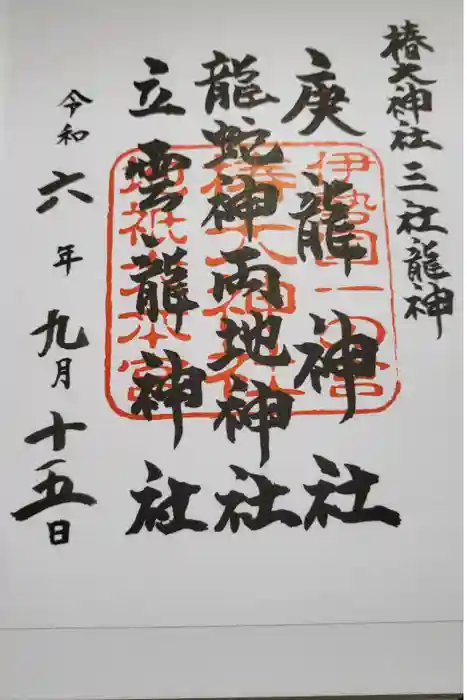 椿大神社 三社龍神
庚龍神社
龍蛇神両地神社
立雲龍神社
令和六年九月十五日
伊勢国一宮
椿大神社
地祇大本宮